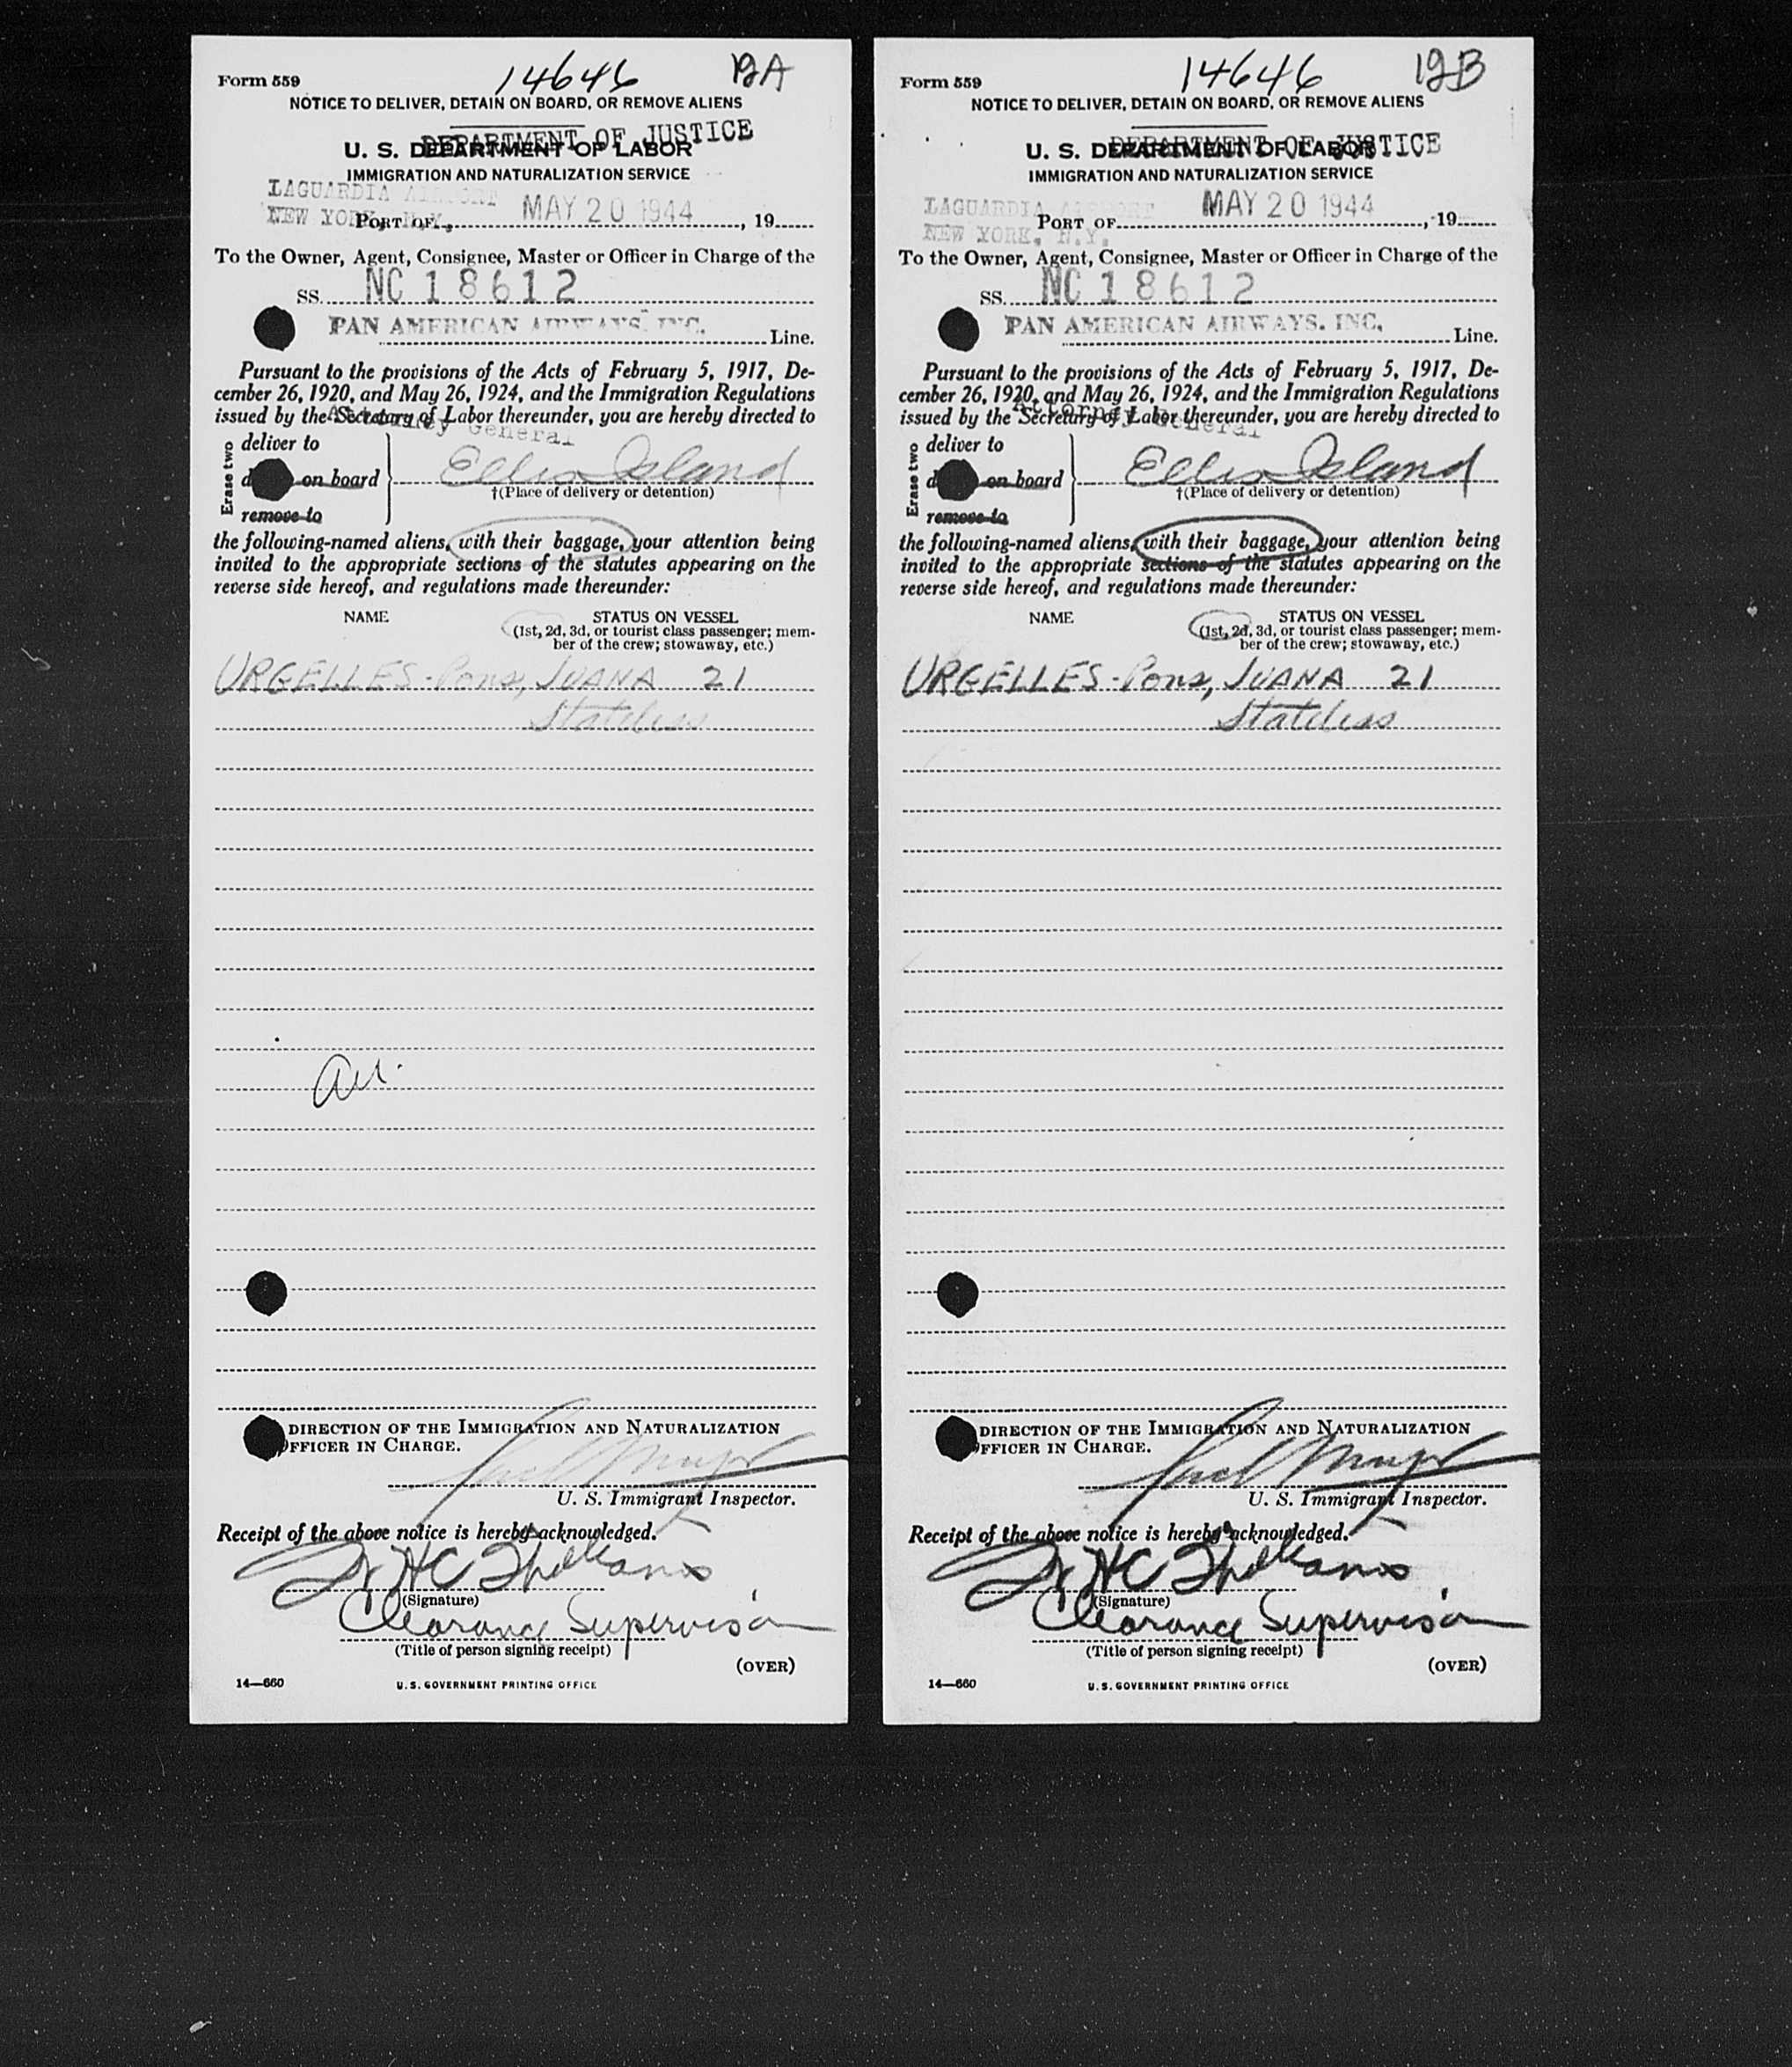 Form 559
14646 12A
NOTICE TO DELIVER, DETAIN ON BOARD, OR REMOVE ALIENS
DEPARTMENT OF JUSTICE
U. S. DEPARTMENT OF LABOR
IMMIGRATION AND NATURALIZATION SERVICE
LAGUARDIA AIRPORT
NEW YORK, N.Y.
PORT OF MAY 20 1944, 19
To the Owner, Agent, Consignee, Master or Officer in Charge of the
SS. NC 18612
PAN AMERICAN AIRWAYS, INC. Line.
Pursuant to the provisions of the Acts of February 5, 1917, De-
cember 26, 1920, and May 26, 1924, and the Immigration Regulations
issued by the Secretary of Labor thereunder, you are hereby directed to
Attorney General
Erase two
deliver to
on board
remove to
Ellis Island
†(Place of delivery or detention)
the following-named aliens, with their baggage, your attention being
invited to the appropriate sections of the statutes appearing on the
reverse side hereof, and regulations made thereunder:
NAME
STATUS ON VESSEL
(1st, 2d, 3d, or tourist class passenger; mem-
ber of the crew; stowaway, etc.)
URGELLES-Pons, JUANA 21
Stateless
DIRECTION OF THE IMMIGRATION AND NATURALIZATION
OFFICER IN CHARGE.
U. S. Immigrant Inspector.
Receipt of the above notice is hereby acknowledged.
(Signature)
Clearance Supervisor
(Title of person signing receipt)
(OVER)
14—660
U.S. GOVERNMENT PRINTING OFFICE
Form 559
14646 12B
NOTICE TO DELIVER, DETAIN ON BOARD, OR REMOVE ALIENS
DEPARTMENT OF JUSTICE
U. S. DEPARTMENT OF LABOR
IMMIGRATION AND NATURALIZATION SERVICE
LAGUARDIA AIRPORT
NEW YORK, N.Y.
PORT OF MAY 20 1944, 19
To the Owner, Agent, Consignee, Master or Officer in Charge of the
SS. NC 18612
PAN AMERICAN AIRWAYS, INC. Line.
Pursuant to the provisions of the Acts of February 5, 1917, De-
cember 26, 1920, and May 26, 1924, and the Immigration Regulations
issued by the Secretary of Labor thereunder, you are hereby directed to
Attorney General
Erase two
deliver to
on board
remove to
Ellis Island
†(Place of delivery or detention)
the following-named aliens, with their baggage, your attention being
invited to the appropriate sections of the statutes appearing on the
reverse side hereof, and regulations made thereunder:
NAME
STATUS ON VESSEL
(1st, 2d, 3d, or tourist class passenger; mem-
ber of the crew; stowaway, etc.)
URGELLES-Pons, JUANA 21
Stateless
DIRECTION OF THE IMMIGRATION AND NATURALIZATION
OFFICER IN CHARGE.
U. S. Immigrant Inspector.
Receipt of the above notice is hereby acknowledged.
(Signature)
Clearance Supervisor
(Title of person signing receipt)
(OVER)
14—660
U.S. GOVERNMENT PRINTING OFFICE